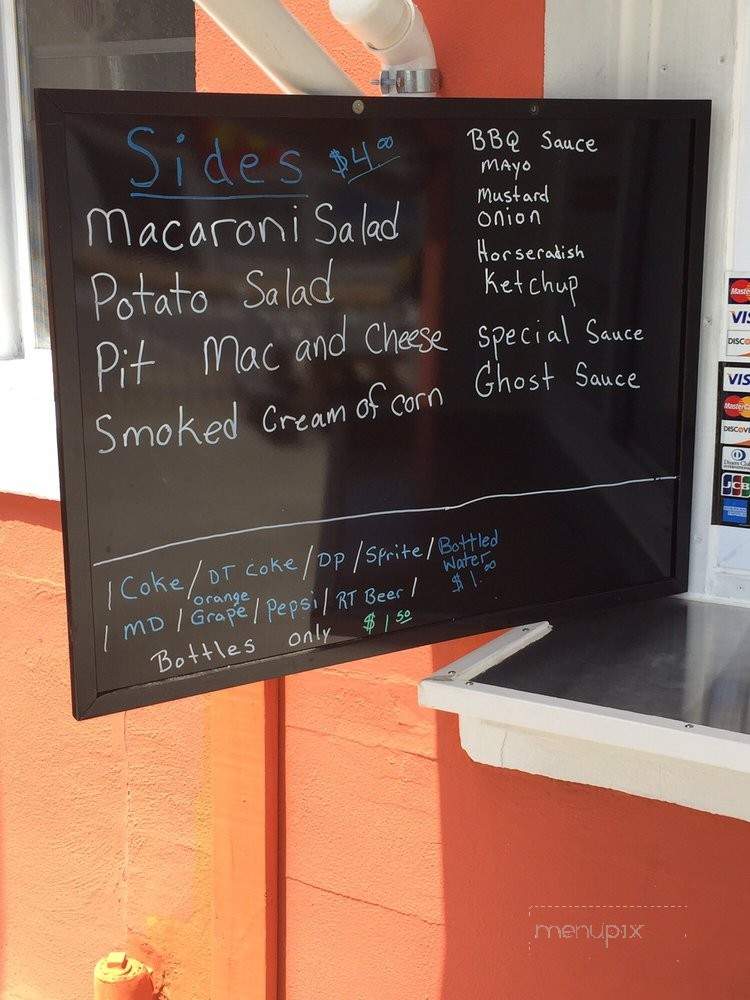 Sides $4.00
Macaroni Salad
Potato Salad
Pit Mac and Cheese
Smoked Cream of corn
BBQ Sauce
MAYO
Mustard
Onion
Horseradish
Ketchup
Special Sauce
Ghost Sauce
| Coke / DT Coke / DP / Sprite / Bottled Water $1.00
| MD / orange Grape / Pepsi / RT Beer /
Bottles only $1 50
Maste
VIS
DISC
VIS
MasterC
DISCOVE
Diners Clu
JCB
menupix